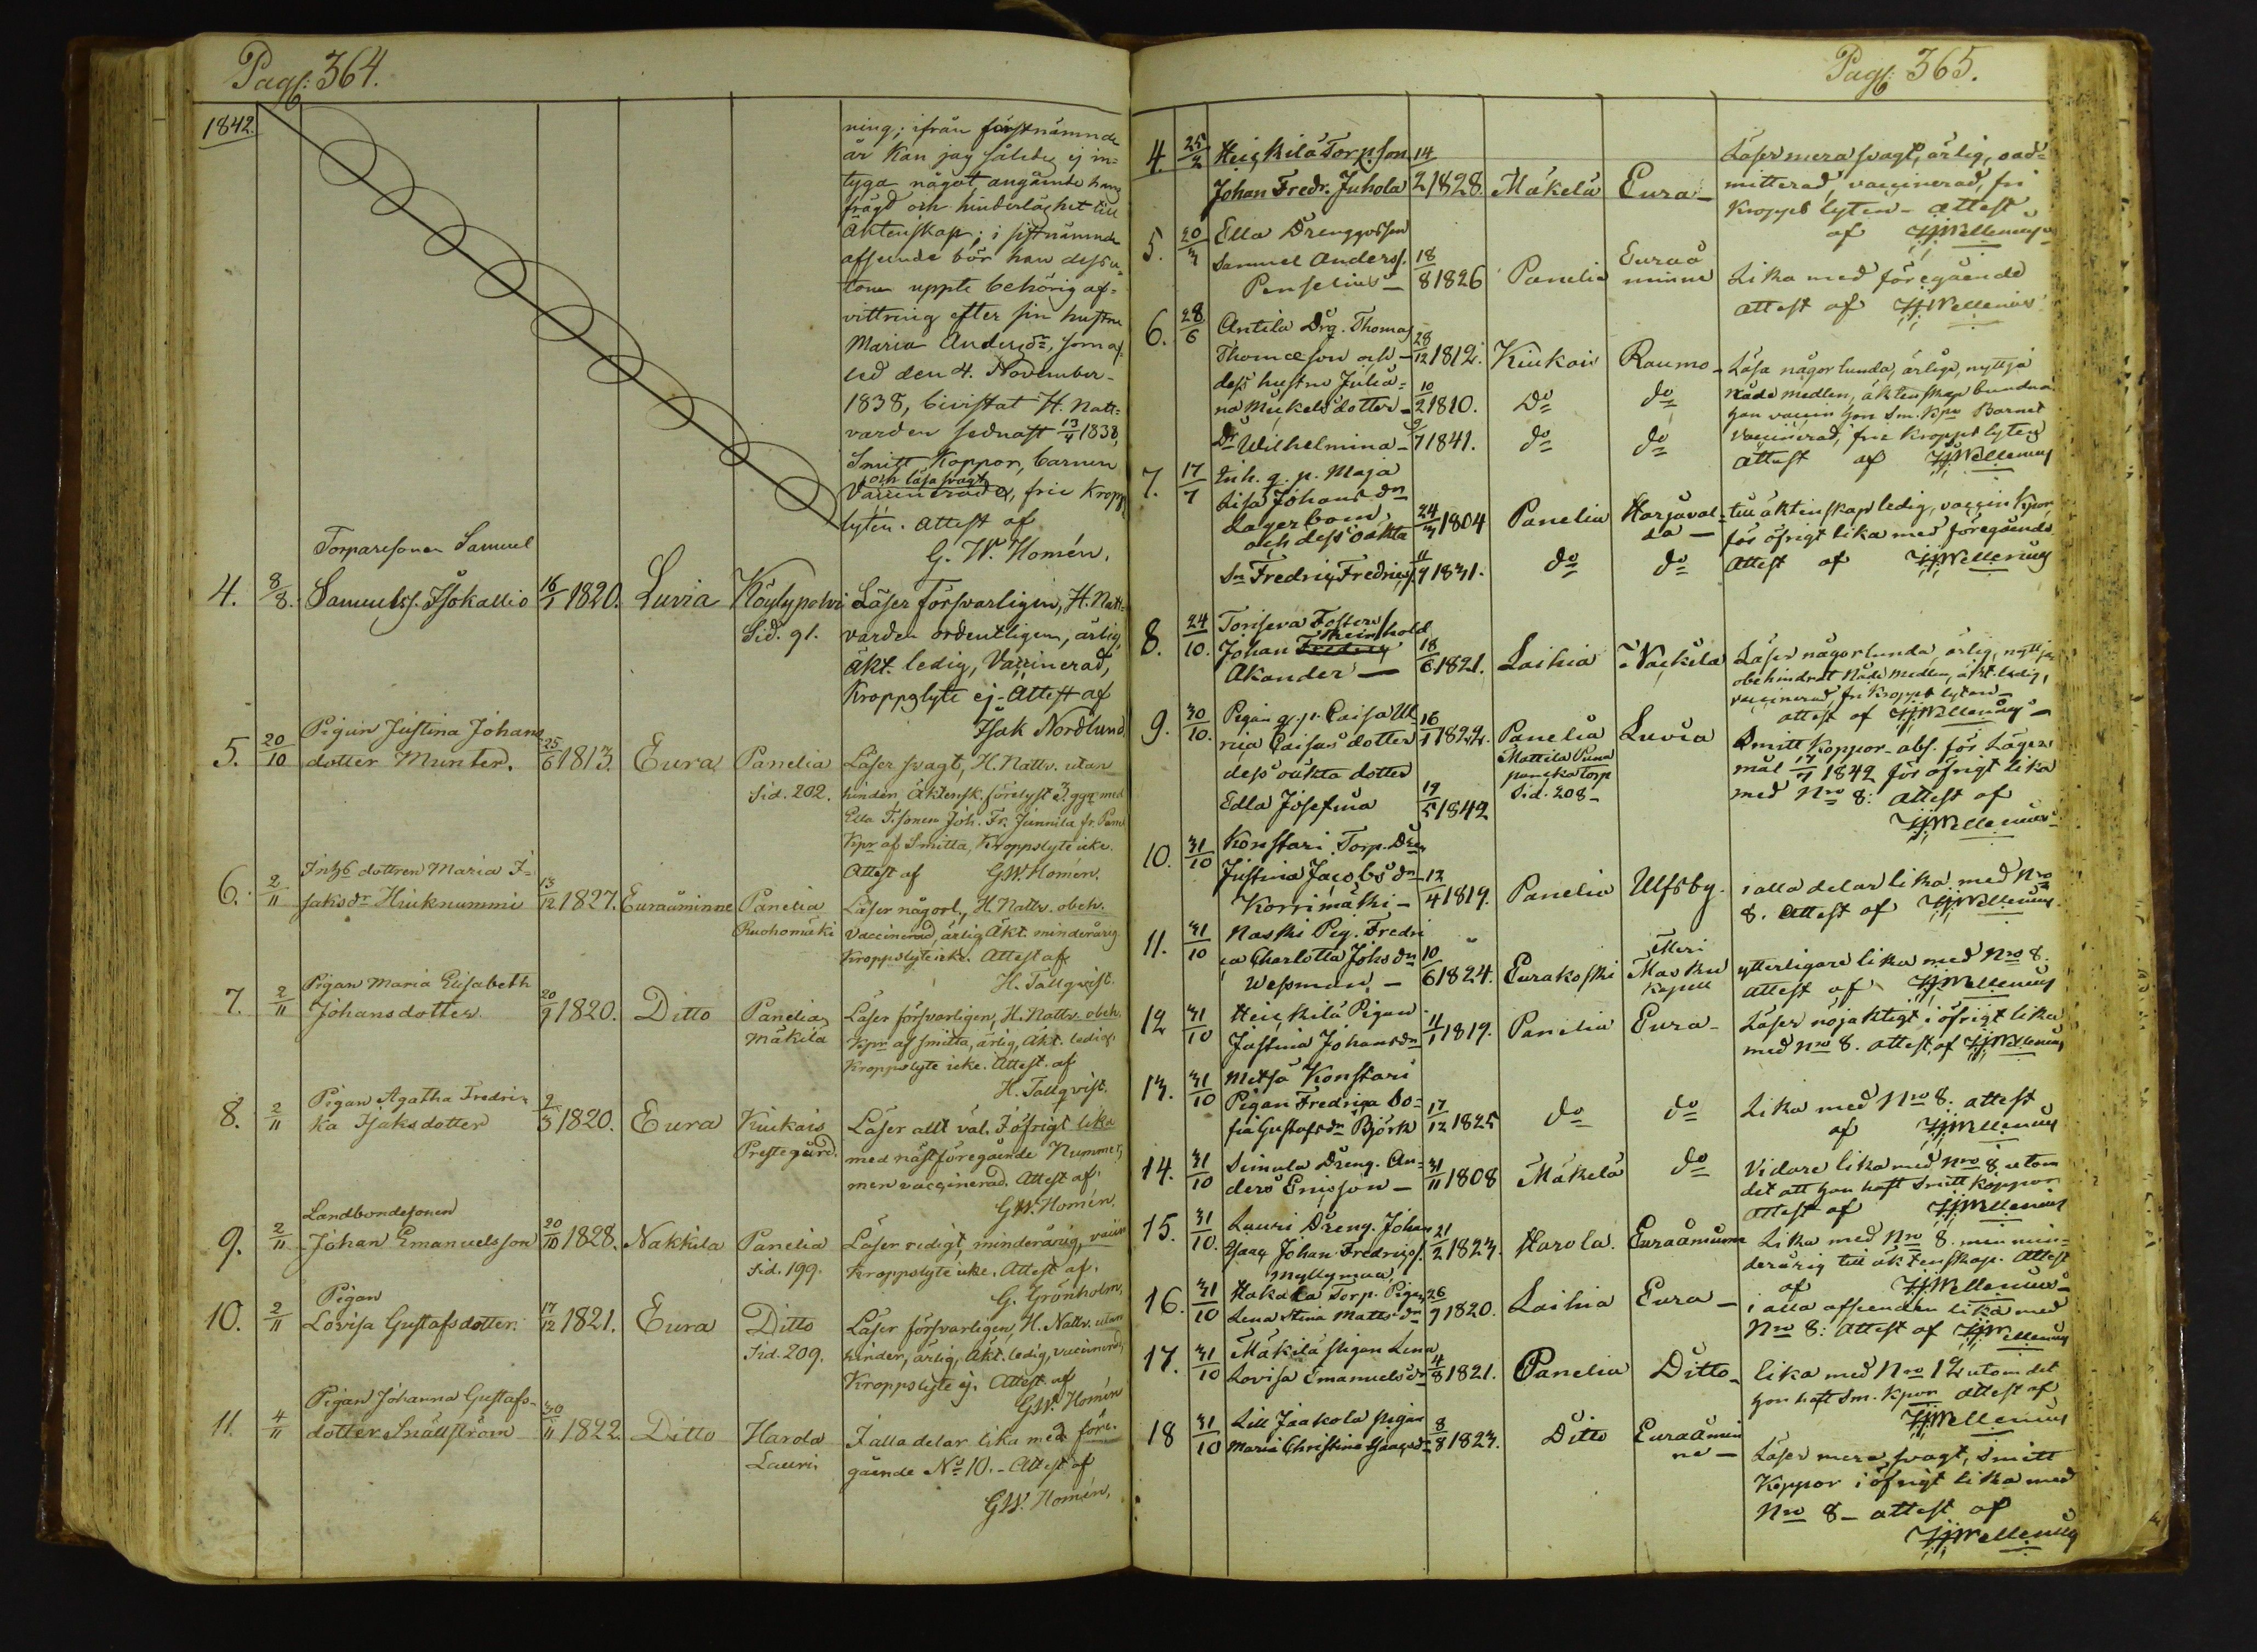 Pag: 364.
1842.
ning; ifrån förstnämnde
år kan jag således ej in=
tyga något angående hans
frägd och hinderlöshet till
Äktenskap; i sistnämnde
afseende bör han dessu=
tom uppte behörig af=
vittring efter sin hustru
Maria Andersdr, som af=
led den 4. November
1838, bivistat H. Natt=
varden sednast 13/4 1838,
Smitt Koppor, barnen
och läsa svagt
Vaccinerade, frie Kropps
lyten. Attest af
G. W. Homén.
Torparesonen Samuel
4. 8/8. Samuelss. Isokallio 16/7 1820. Luvia Köylypolvi Läser försvarligen, H. Natt=
Sid. 91. varden ordentligen, ärlig,
äkt. ledig, Vaccinerad,
Kroppslyte ej. Attest af
Isak Nordlund
Pigan Justina Johans
5. 20/10 dotter Munter. 25/6 1813. Eura Panelia Läser svagt, H. Nattv. utan
Sid. 202. hinder, Äktensk. förelyst 3 ggr med
Ella T.sonen Joh. Fr. Junnila fr. Pane
Kpr af Smitta, Kroppslyte icke.
Attest af G.W. Homén.
Inhs dottren Maria I=
6. 2/11 saksdr Hiuknummi 13/12 1827. Euraåminne Panelia Läser någorl., H. Nattv. obeh.
Ruohomäki Vaccinerad, ärlig, Äkt. minderårig
Kroppslyte icke. Attest af
H. Tallqvist.
Pigan Maria Elisabeth
7. 2/11 Johansdotter 20/9 1820. Ditto Panelia, Läser försvarligen, H. Nattv. obeh.
Mäkilä Kpr af smitta, ärlig, Äkt. ledig,
Kroppslyte icke. Attest. af
H. Tallqvist.
Pigan Agatha Fredri=
8. 2/11 ka Isaksdotter 2/3 1820. Eura Kiukais Läser allt väl. I öfrigt lika
Prestegård. med nästföregående Nummer,
men vaccinerad. Attest af
G.W. Homén.
Landbondesonen
9. 2/11 Johan Emanuelsson 20/10 1828. Nakkila Panelia Läser redigt, minderårig, vaccin
Sid. 199. Kroppslyte icke. Attest af.
G. Grönholm,
Pigan
10. 2/11 Lovisa Gustafsdotter. 17/12 1821. Eura Ditto Läser försvarligen, H. Nattv. utan
Sid. 209. hinder, ärlig, Äkt. ledig, vaccinerad,
Kroppslyte ej. Attest af
G.W. Homén
Pigan Johanna Gustafs=
11. 4/11 dotter Snällström 30/11 1822. Ditto Harola I alla delar lika med före=
Lauri. gående No 10. - Attest af
G.W. Homén.
Pag: 365.
4. 25/2 Heickilä Torp.son 14/2 1828. Mäkelä Eura - Läser mera svagt, ärlig, oad=
Johan Fredr. Juhola mitterad, vaccinerad, fri
Kropps lyten - attest
af HjWellenius
5. 20/3 Ella Drenggossen
Samuel Anderss. 18/8 1826 Panelia Euraå
Penselius - minne Lika med föregående
attest af HjWellenius
6. 28/6 Antila Drg. Thomas
Thomasson och - 28/12 1812. Kiukais Raumo - Läsa någorlunda, ärlige, nyttja
dess hustru Julia= nådemedlen, äktenskap bundna
na Mickelsdotter - 10/2 1810. Do do han vaccin hon Sm. Kpr Barnet
Dr Wilhelmina - 9/7 1841. do do vaccinerad, frie Kroppslyten
attest af HjWellenius
7. 17/7 Inh. q. p. Maja
Lisa Johansdr
Lagerbom, 24/3 1804 Panelia Harjaval= till äktenskap ledig, vaccin Kpor,
och dess oäkta da - för öfrigt lika med föregående
Sn Fredric Fredricss. 11/9 1831. do do attest af HjWellenius
8. 24/10. Toriseva Fostern
Theinhold
Johan Fredric 18/6 1821. Laihia Nackila Läser någorlunda, ärlig, nyttjar
Akander - obehindrat Nådemedlen, äkt. ledig,
vaccinerad, fri Kropps lyten -
attest af HjWellenius -
9. 30/10. Pigan q. p. Caisa Ul=
rica Caisasdotter 16/1 1822. Panelia Luvia Smitt Koppor - abs. för Läger=
dess oäkta dotter Mattila Puna mål 17/7 1842 för öfrigt lika
Edla Josefina 19/5 1842 Sid. 208 - med Nro 8: attest af
HjWellenius
10. 31/10 Konstari Torp. Drn
Justina Jacobsdn 12/4 1819. Panelia Ulfsby. i alla delar lika med Nro
Korrimäki - 8. attest af HjWellenius
11. 31/10 Naski Pig. Fredri
ca Charlotta Johsdn 10/6 1824. Eurakoski Meri
Wessman. - Masku ytterligare lika med Nro 8.
Kapell attest af HjWellenius
12 31/10 Heickilä Pigan
Justina Johansdn 11/1 1819. Panelia Eura - Läser nöjaktigt i öfrigt lika
med Nro 8. attest af HjWellenius
13. 31/10 Metsä Konstari
Pigan Fredrica So=
fia Gustafsdn Björk 17/12 1825 do do Lika med Nro 8. attest
af HjWellenius
14. 31/10 Simula Dreng. An=
ders Ericsson - 31/11 1808 Mäkelä do Vidare lika med Nro 8 utom
det att han haft Smitt Koppor
attest af HjWellenius
15. 31/10. Lauri Dreng. Johan
Isaac Johan Fredricss. 21/2 1823. Harola. Euraåminne Lika med Nro 8. men min=
Myllymaa, derårig till äktenskap. Attest
af HjWellenius -
16. 31/10 Hakala Torp. Pigan 26/9 1820. Laihia Eura - i alla afseenden lika med
Lena Stina Mattsdn Nro 8: attest af HjWellenius
17. 31/10 Mäkilä pigan Lena
Lovisa Emanuelsdn 4/8 1821. Panelia Ditto - lika med Nro 12 utom det
hon haft Sm. Kpor attest af
HjWellenius
18 31/10 Lill Jaakola pigan
Maria Christina Isaacsdr 8/8 1823. Ditto Euraåmin
ne - Läser mera svagt, Smitt
Koppor i öfrigt lika med
Nro 8 - attest af
HjWellenius